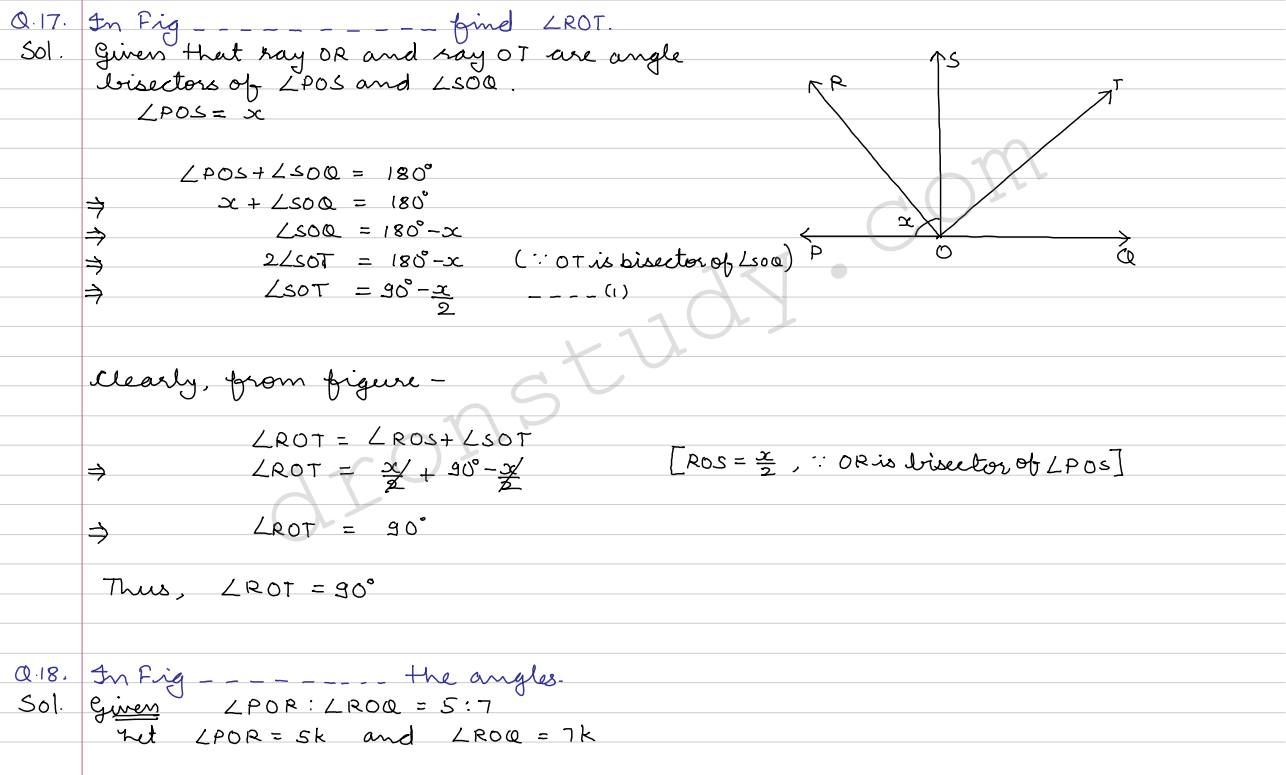 Q.17. In Fig - - - - - - - - - - - find ∠ROT.
Sol. Given that ray OR and ray OT are angle
bisectors of ∠POS and ∠SOQ.
∠POS = x
∠POS + ∠SOQ = 180°
⇒ x + ∠SOQ = 180°
⇒ ∠SOQ = 180° - x
⇒ 2∠SOT = 180° - x (∵ OT is bisector of ∠SOQ)
⇒ ∠SOT = 90° - x/2 - - - - (1)
R
S
T
x
P
O
Q
Clearly, from figure -
∠ROT = ∠ROS + ∠SOT
⇒ ∠ROT = x/2 + 90° - x/2 [ROS = x/2, ∵ OR is bisector of ∠POS]
⇒ ∠ROT = 90°
Thus, ∠ROT = 90°
Q.18. In Fig - - - - - - - - - - the angles.
Sol. Given ∠POR : ∠ROQ = 5 : 7
Let ∠POR = 5k and ∠ROQ = 7k
dronstudy.com